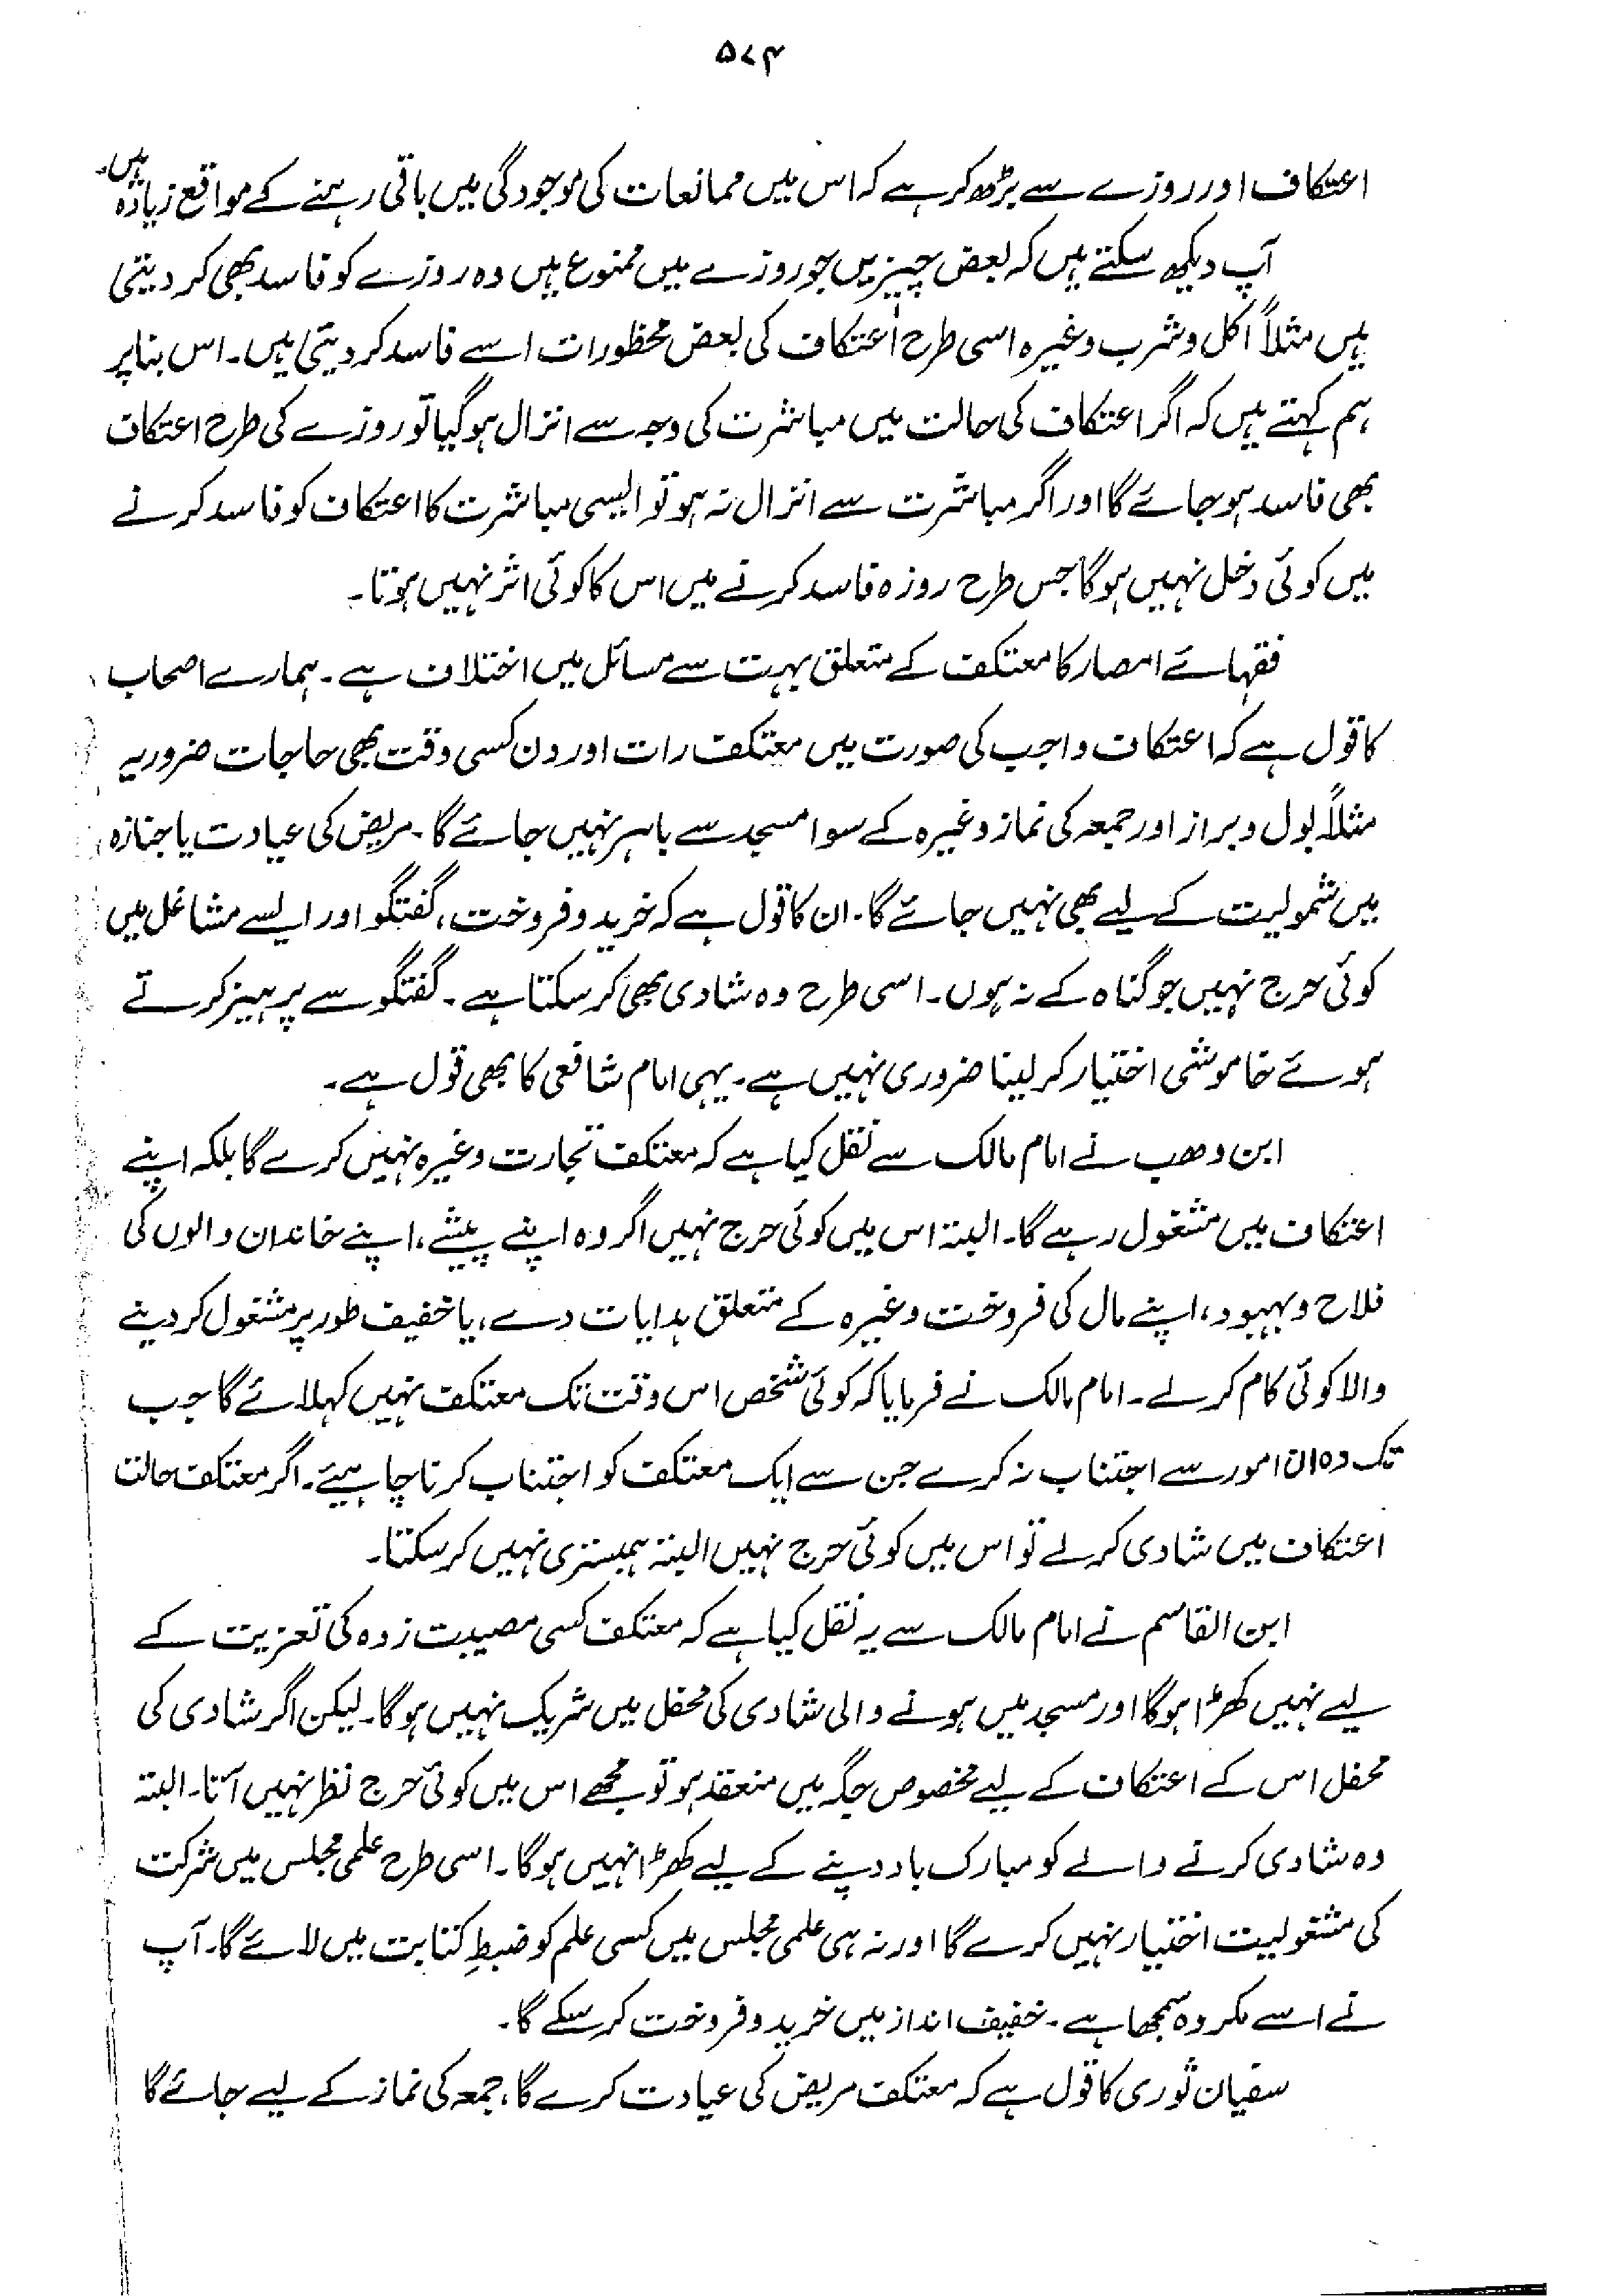 ۵۷۴
اعتکاف اور روزے سے بڑھ کر ہے کہ اس میں ممانعات کی موجودگی میں باقی رہنے کے مواقع زیادہ ہیں۔
آپ دیکھ سکتے ہیں کہ بعض چیزیں جو روزے میں ممنوع ہیں وہ روزے کو فاسد بھی کر دیتی
ہیں مثلاً اکل و شرب وغیرہ اسی طرح اعتکاف کی بعض محظورات اسے فاسد کر دیتی ہیں۔ اس بنا پر
ہم کہتے ہیں کہ اگر اعتکاف کی حالت میں مباشرت کی وجہ سے انزال ہو گیا تو روزے کی طرح اعتکاف
بھی فاسد ہو جائے گا اور اگر مباشرت سے انزال نہ ہو تو ایسی مباشرت کا اعتکاف کو فاسد کرنے
میں کوئی دخل نہیں ہو گا جس طرح روزہ فاسد کرنے میں اس کا کوئی اثر نہیں ہوتا۔
فقہائے امصار کا معتکف کے متعلق بہت سے مسائل میں اختلاف ہے۔ ہمارے اصحاب
کا قول ہے کہ اعتکاف واجب کی صورت میں معتکف رات اور دن کسی وقت بھی حاجات ضروریہ
مثلاً بول و براز اور جمعہ کی نماز وغیرہ کے سوا مسجد سے باہر نہیں جائے گا۔ مریض کی عیادت یا جنازہ
میں شمولیت کے لیے بھی نہیں جائے گا۔ ان کا قول ہے کہ خرید و فروخت، گفتگو اور ایسے مشاغل میں
کوئی حرج نہیں جو گناہ کے نہ ہوں۔ اسی طرح وہ شادی بھی کر سکتا ہے۔ گفتگو سے پرہیز کرتے
ہوئے خاموشی اختیار کر لینا ضروری نہیں ہے۔ یہی امام شافعی کا بھی قول ہے۔
ابن وھب نے امام مالک سے نقل کیا ہے کہ معتکف تجارت وغیرہ نہیں کرے گا بلکہ اپنے
اعتکاف میں مشغول رہے گا۔ البتہ اس میں کوئی حرج نہیں اگر وہ اپنے پیشے، اپنے خاندان والوں کی
فلاح و بہبود، اپنے مال کی فروخت وغیرہ کے متعلق ہدایات دے، یا خفیف طور پر مشغول کر دینے
والا کوئی کام کر لے۔ امام مالک نے فرمایا کہ کوئی شخص اس وقت تک معتکف نہیں کہلائے گا جب
تک وہ ان امور سے اجتناب نہ کرے جن سے ایک معتکف کو اجتناب کرنا چاہیئے۔ اگر معتکف حالت
اعتکاف میں شادی کر لے تو اس میں کوئی حرج نہیں البتہ ہمبستری نہیں کر سکتا۔
ابن القاسم نے امام مالک سے یہ نقل کیا ہے کہ معتکف کسی مصیبت زدہ کی تعزیت کے
لیے نہیں کھڑا ہو گا اور مسجد میں ہونے والی شادی کی محفل میں شریک نہیں ہو گا۔ لیکن اگر شادی کی
محفل اس کے اعتکاف کے لیے مخصوص جگہ میں منعقد ہو تو مجھے اس میں کوئی حرج نظر نہیں آتا۔ البتہ
وہ شادی کرنے والے کو مبارک باد دینے کے لیے کھڑا نہیں ہو گا۔ اسی طرح علمی مجلس میں شرکت
کی مشغولیت اختیار نہیں کرے گا اور نہ ہی علمی مجلس میں کسی علم کو ضبطِ کتابت میں لائے گا۔ آپ
نے اسے مکروہ سمجھا ہے۔ خفیف انداز میں خرید و فروخت کر سکے گا۔
سفیان ثوری کا قول ہے کہ معتکف مریض کی عیادت کرے گا، جمعہ کی نماز کے لیے جائے گا